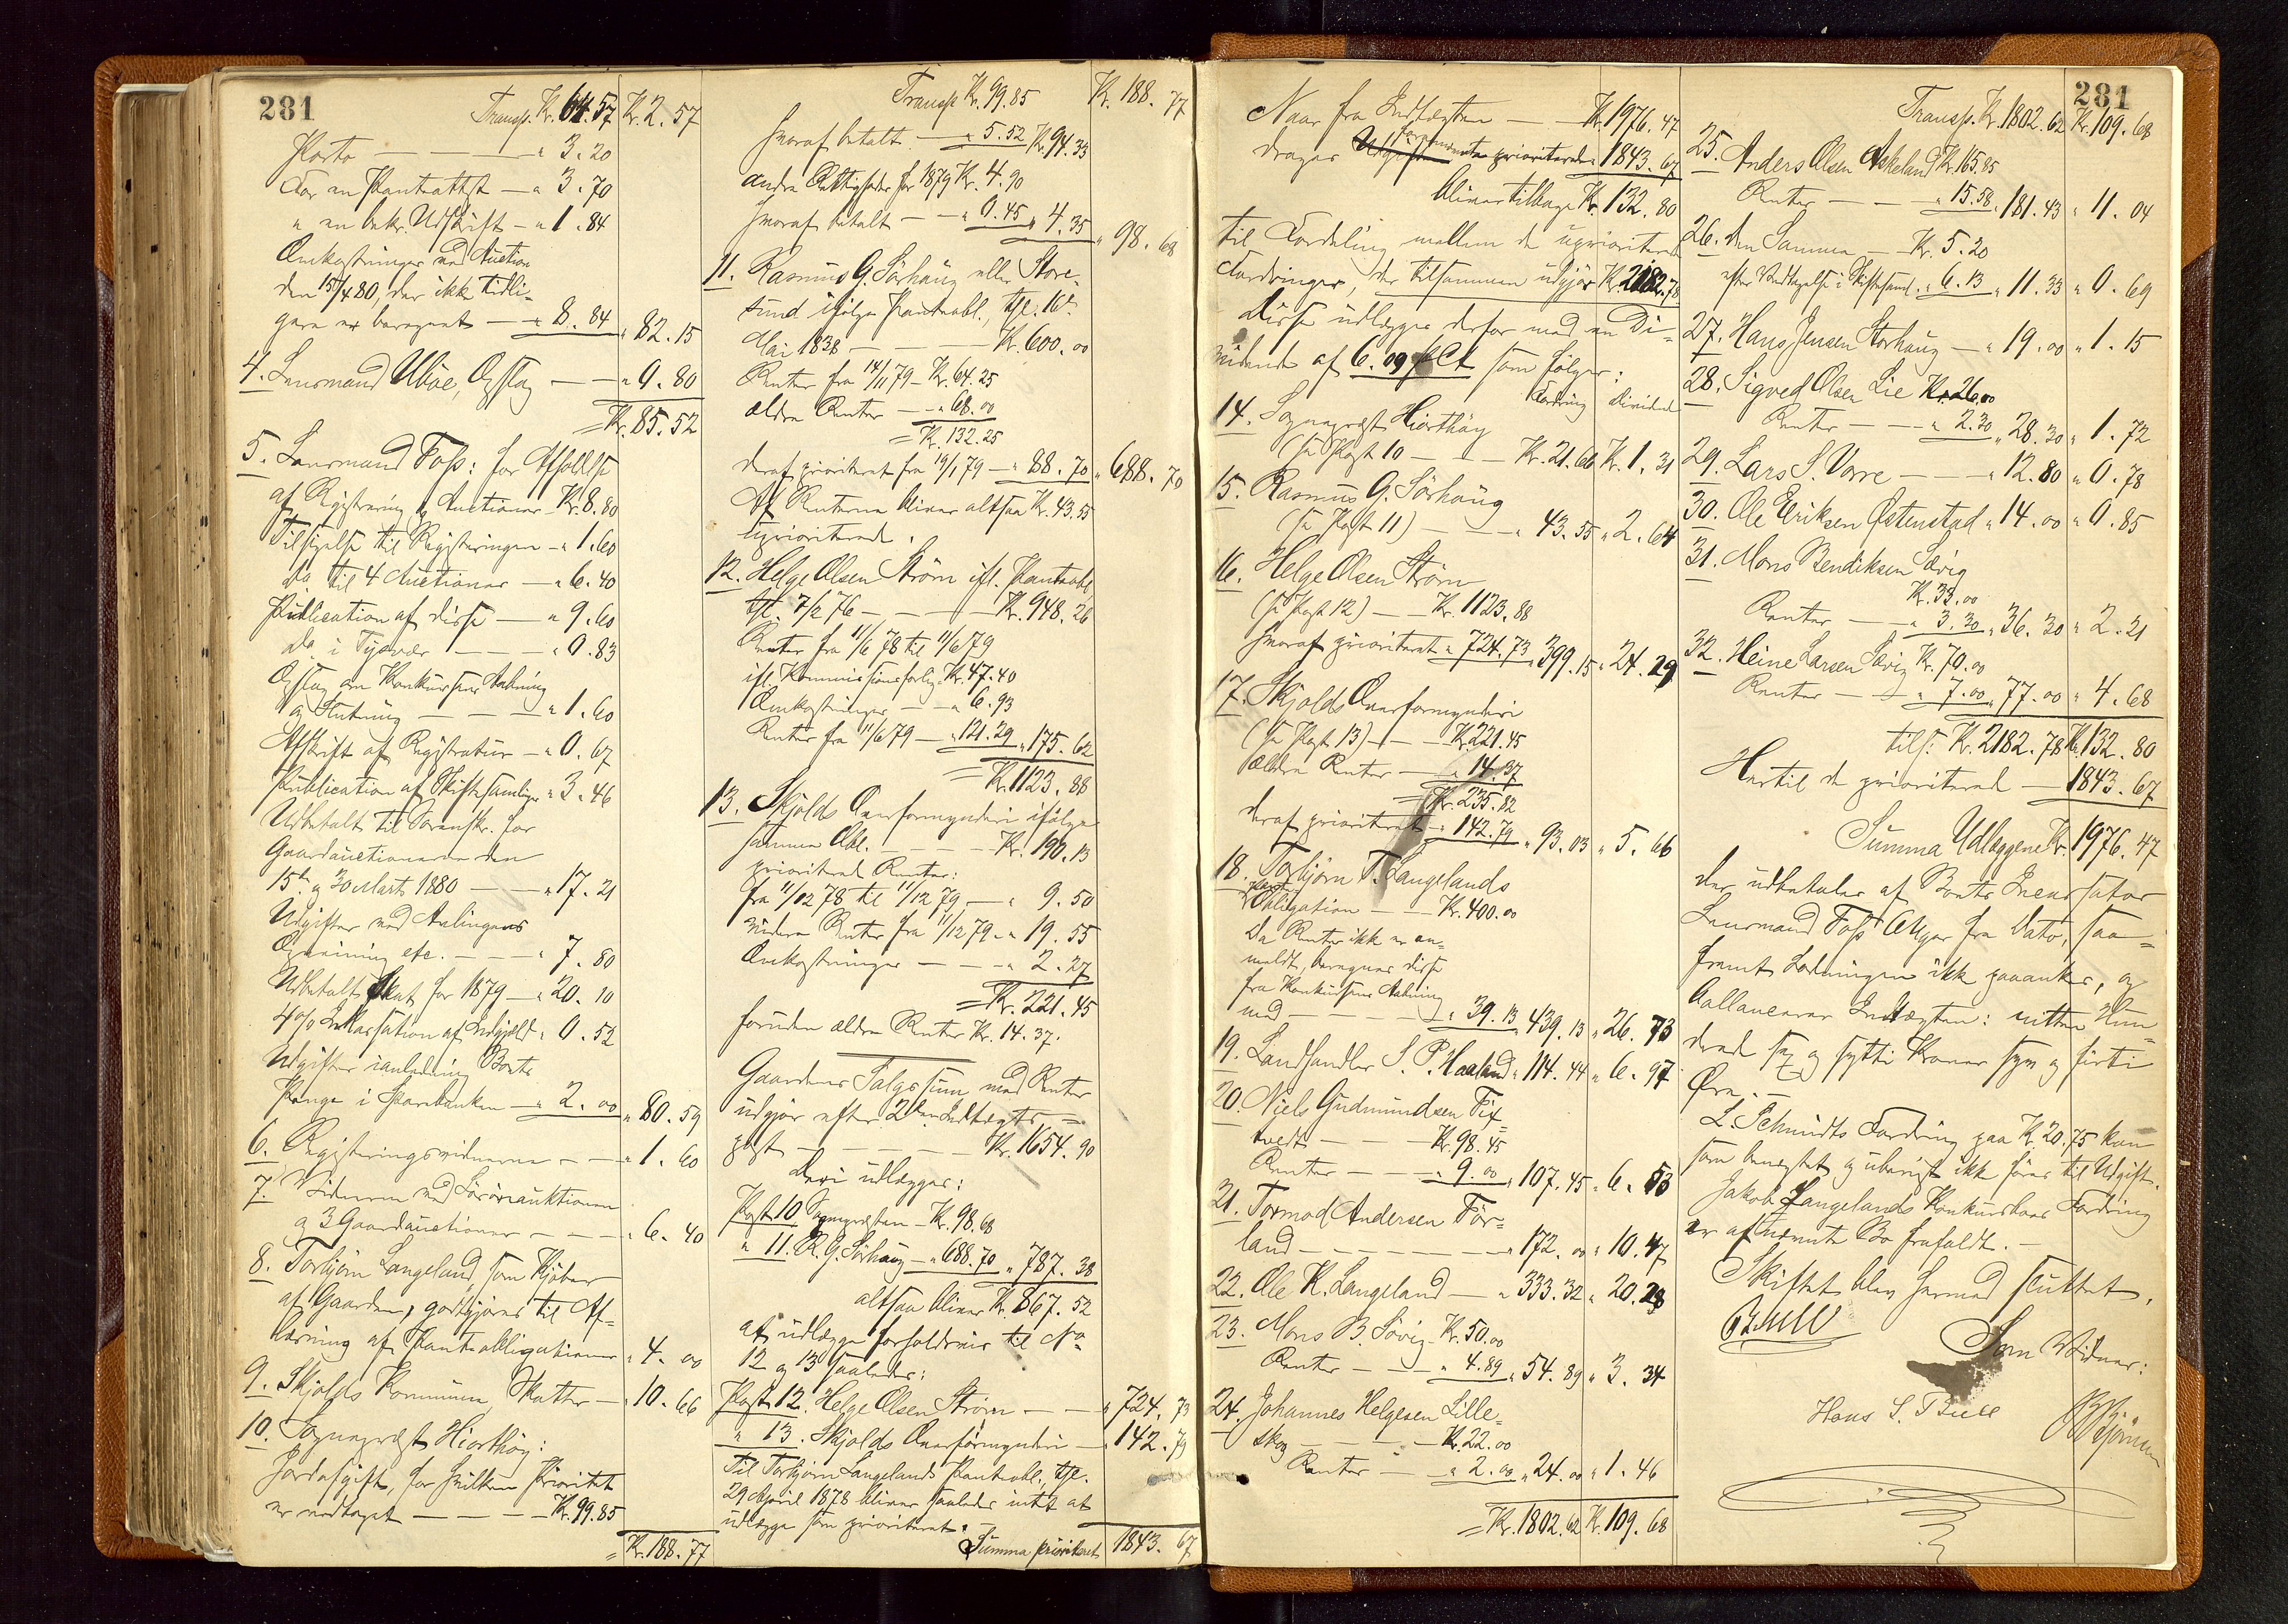 281
Transp. Kr. 64.57 Kr. 2.57
Porto — — — " 3.20
For en Pantattest — " 3.70
" en bekr. Udskrift — " 1.84
Omkostninger ved Auction
den 15/4 80, der ikke tidli-
gere er beregnet — " 8.84 " 82.15
4. Lensmand Ubøe, Opslag — — " 0.80
= Kr. 85.52
5. Lensmand Foss: for Afholdelse
af Registrering og Auctioner Kr. 8.80
Tilsigelse til Registeringen — " 1.60
do til 4 Auctioner — " 6.40
Publication af disse — " 9.60
do i Tysvær — — " 0.83
Opslag om Konkursens Aabning
og Slutning — — — " 1.60
Afskrift af Registratur — " 0.67
Publication af Skiftesamlinger " 3.46
Udbetalt til Sorenskr. for
Gaardauctionerne den
15de og 30 Marts 1880 — — " 17.21
Udgifter ved Avlingens
Opviining etc. — — — " 7.80
Udbetalt Skat for 1879 — " 20.10
4% Inkassation af Indgjæld " 0.52
Udgifter i anledning Boets
Penge i Sparebanken — " 2.00 " 80.59
6. Registeringsvidnerne — — " 1.60
7. Vidnerne ved Løsøreauktionen
og 3 Gaardauctioner — — — " 6.40
8. Torbjørn Langeland, som Kjøber
af Gaarden, godtgjøres til Af-
læsning af Panteobligationer " 4.00
9. Skjolds Kommune, Skatter — " 10.66
10. Sogneprest Hiorthøy:
Jordafgift, for hvilken Prioritet
er vedtaget — — — — Kr. 99.85
= Kr. 188.77
Transp. Kr. 99.85 Kr. 188.77
hvoraf betalt — " 5.52 Kr. 94.33
andre Rettigheder for 1879 Kr. 4.90
hvoraf betalt — — " 0.45 " 4.35 " 98.68
11. Rasmus G. Sörhaug eller Store-
sund ifølge Panteobl., tgl. 16de
Mai 1838 — — — — Kr. 600.00
Renter fra 14/11 79 — Kr. 64.25
ældre Renter — — " 68.00
= Kr. 132.25
deraf prioriteret fra 19/1 79 — " 88.70 " 688.70
Af Renterne bliver altsaa Kr. 43.55
uprioriterede.
12. Helge Olsen Strøm ifl. Panteobl.
tgl. 7/2 76 — — — — Kr. 948.26
Renter fra 11/6 78 til 11/6 79
ifl. Kommissionsforlig Kr. 47.40
Omkostninger — — " 6.93
Renter fra 11/6 79 — " 121.29 " 175.62
= Kr. 1123.88
13. Skjolds Overformynderi ifølge
samme Obl. — — — — Kr. 190.13
prioriterede Renter:
fra 11/12 78 til 11/12 79 — " 9.50
videre Renter fra 11/12 79 — " 19.55
Omkostninger — — — " 2.27
= Kr. 221.45
foruden ældre Renter Kr. 14.37.
Gaardens Salgssum med Renter
udgjør efter 2den Indtægts-
post — — — — — Kr. 1654.90
deri udlægges:
Post 10 Sognepresten — Kr. 98.68
" 11. R. G. Sörhaug — " 688.70 " 787.38
altsaa bliver Kr. 867.52
at udlægge forholdsvis til No
12 og 13 saaledes:
Post 12. Helge Olsen Strøm — — " 724.73
" 13. Skjolds Overformynderi — " 142.79
Til Torbjørn Langelands Panteobl., tgl.
29 April 1878 bliver saaledes intet at
udlægge som prioriteret. —
Summa prioriteret 1843.67
Naar fra Indtægten — — Kr. 1976.47
drages Udgiften foranstaaende prioriterede " 1843.67
bliver tilbage Kr. 132.80
til Fordeling mellem de uprioriterede
Fordringer, der tilsammen udgjør Kr. 2182.78
Disse udlægges derfor med en Di-
vidende af 6.09 pCt som følger:
Fordring Dividende
14. Sogneprest Hiorthøy
(se Post 10 — — Kr. 21.66 Kr. 1.31
15. Rasmus G. Sörhaug
(se Post 11) — — — " 43.55 " 2.64
16. Helge Olsen Strøm
(se Post 12) — — Kr. 1123.88
hvoraf prioriteret " 724.73 " 399.15 " 24.29
17. Skjolds Overformynderi
(se Post 13) — — Kr. 221.45
ældre Renter — — " 14.37
= Kr. 235.82
deraf prioriteret " 142.79 " 93.03 " 5.66
18. Torbjørn T. Langelands
Pante
Obligation — — Kr. 400.00
Da Renter ikke er an-
meldt, beregnes disse
fra Konkursens Aabning
med — — — — " 39.13 439.13 " 26.73
19. Landhandler S. P. Haaland " 114.44 " 6.97
20. Niels Gudmundsen Tix-
tvedt — — — Kr. 98.45
Renter — — — " 9.00 " 107.45 " 6.53
21. Tormod Andersen Før-
land — — — — — " 172.00 " 10.47
22. Ole K. Langeland — " 333.32 " 20.28
23. Mons B. Søvig Kr. 50.00
Renter — — " 4.89 " 54.89 " 3.34
24. Johannes Helgesen Lille-
skog — — — — Kr. 22.00
Renter — — " 2.00 " 24.00 " 1.46
= Kr. 1802.62 Kr. 109.68
281
Transp. Kr. 1802.62 Kr. 109.68
25. Anders Olsen Askeland Kr. 165.85
Renter — — " 15.58 " 181.43 " 11.04
26. den Samme — Kr. 5.20
efter Vedtagelse i Skiftesaml. " 6.13 " 11.33 " 0.69
27. Hans Jensen Storhaug — " 19.00 " 1.15
28. Sigved Olsen Lie Kr. 26.00
Renter — — " 2.30 " 28.30 " 1.72
29. Lars S. Vorre — — — " 12.80 " 0.78
30. Ole Eriksen Østenstad " 14.00 " 0.85
31. Mons Bendiksen Søvig
Kr. 33.00
Renter — — " 3.30 " 36.30 " 2.21
32. Heine Larsen Søvig Kr. 70.00
Renter — — " 7.00 " 77.00 " 4.68
tils. Kr. 2182.78 Kr. 132.80
Hertil de prioriterede — 1843.67
Summa Udlæggene Kr. 1976.47
der udbetales af Boets Incassator
Lensmand Foss 6 Uger fra Dato, saa-
fremt Lodningen ikke paaankes, og
ballancerer Indtægten: nitten Hun-
drede sex og sytti Kroner syv og firti
Øre. —
L. Schmidts Fordring paa Kr. 20.75 kan
som benegtet og ubevist ikke føres til Udgift.
Jakob Langelands Konkursboes Fordring
er af nævnte Bo frafaldt. —
Skiftet blev hermed sluttet.
Bull
Som Vidner:
Hans S. Bull